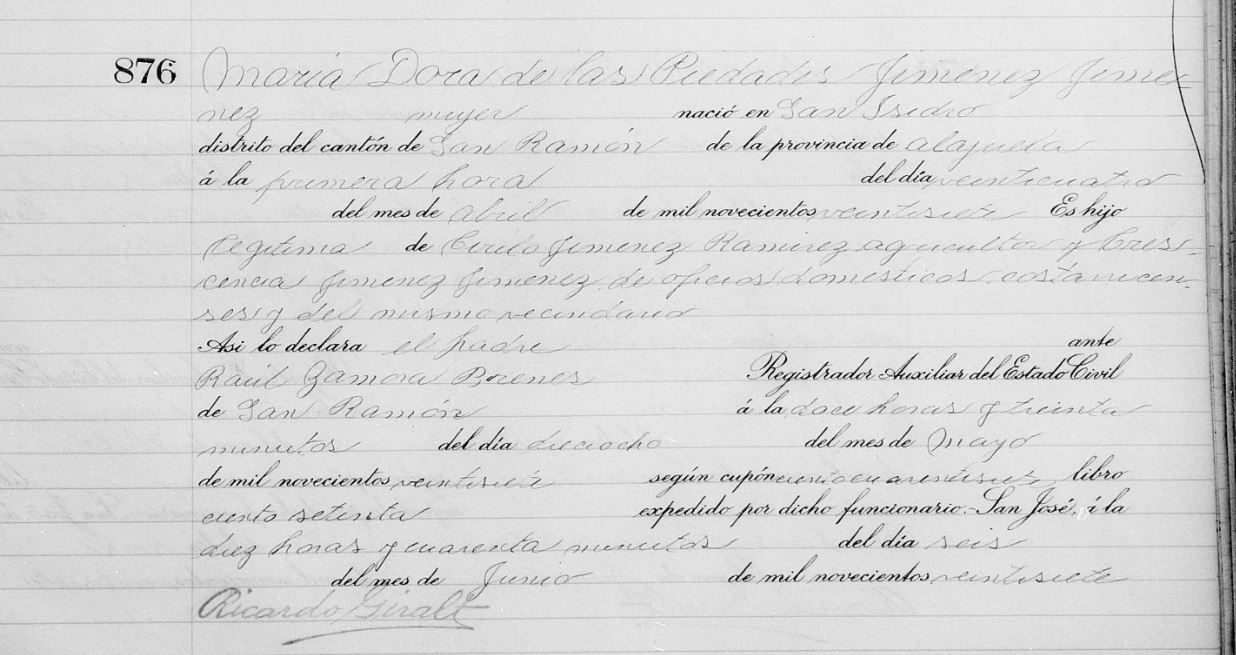 876 María Dora de las Piedades Jimenez Jime-
nez mujer nació en San Isidro
distrito del cantón de San Ramón de la provincia de Alajuela
á la primera hora del día veinticuatro
del mes de abril de mil novecientos veintisiete Es hijo
legítima de Cirilo Jimenez Ramirez agricultor y Cres-
cencia Jimenez Jimenez, de oficios domésticos costarricen-
ses y del mismo vecindario
Asi lo declara el padre ante
Raúl Zamora Brenes Registrador Auxiliar del Estado Civil
de San Ramón á la doce horas y treinta
minutos del día dieciocho del mes de Mayo
de mil novecientos veintisiete según cupón ciento cuarentisiete libro
ciento setenta expedido por dicho funcionario.- San José, á la
diez horas y cuarenta minutos del día seis
del mes de Junio de mil novecientos veintisiete
Ricardo Giralt